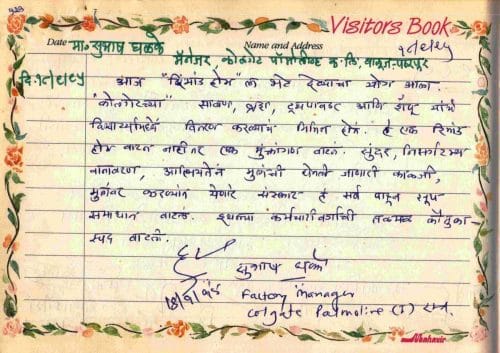 Visitors Book
Date मा. सुभाष धळके Name and Address
मॅनेजर, कोलगेट पॉमोलीव्ह क. लि.
आज "रिमांड होम" ला भेट देण्याचा योग आला.
"कोलगेटच्या" साबण, ब्रश, टुथपावडर आणि शँपू यांचे
विद्यार्थ्यांमध्ये वितरण करण्याचे निमित्त होते. हे एक रिमांड
होम वाटत नाही तर एक मुक्तांगण वाटले. सुंदर, निसर्गरम्य
वातावरण, आत्मियतेने मुलांची घेतली जाणारी काळजी,
मुलांवर करण्यांत येणारे संस्कार हे सर्व पाहून खूप
समाधान वाटले. इथल्या कर्मचारीवर्गाची तळमळ कौतुका-
स्पद वाटली.
सुभाष
Factory Manager
Colgate Palmolive (I)
Mahavir